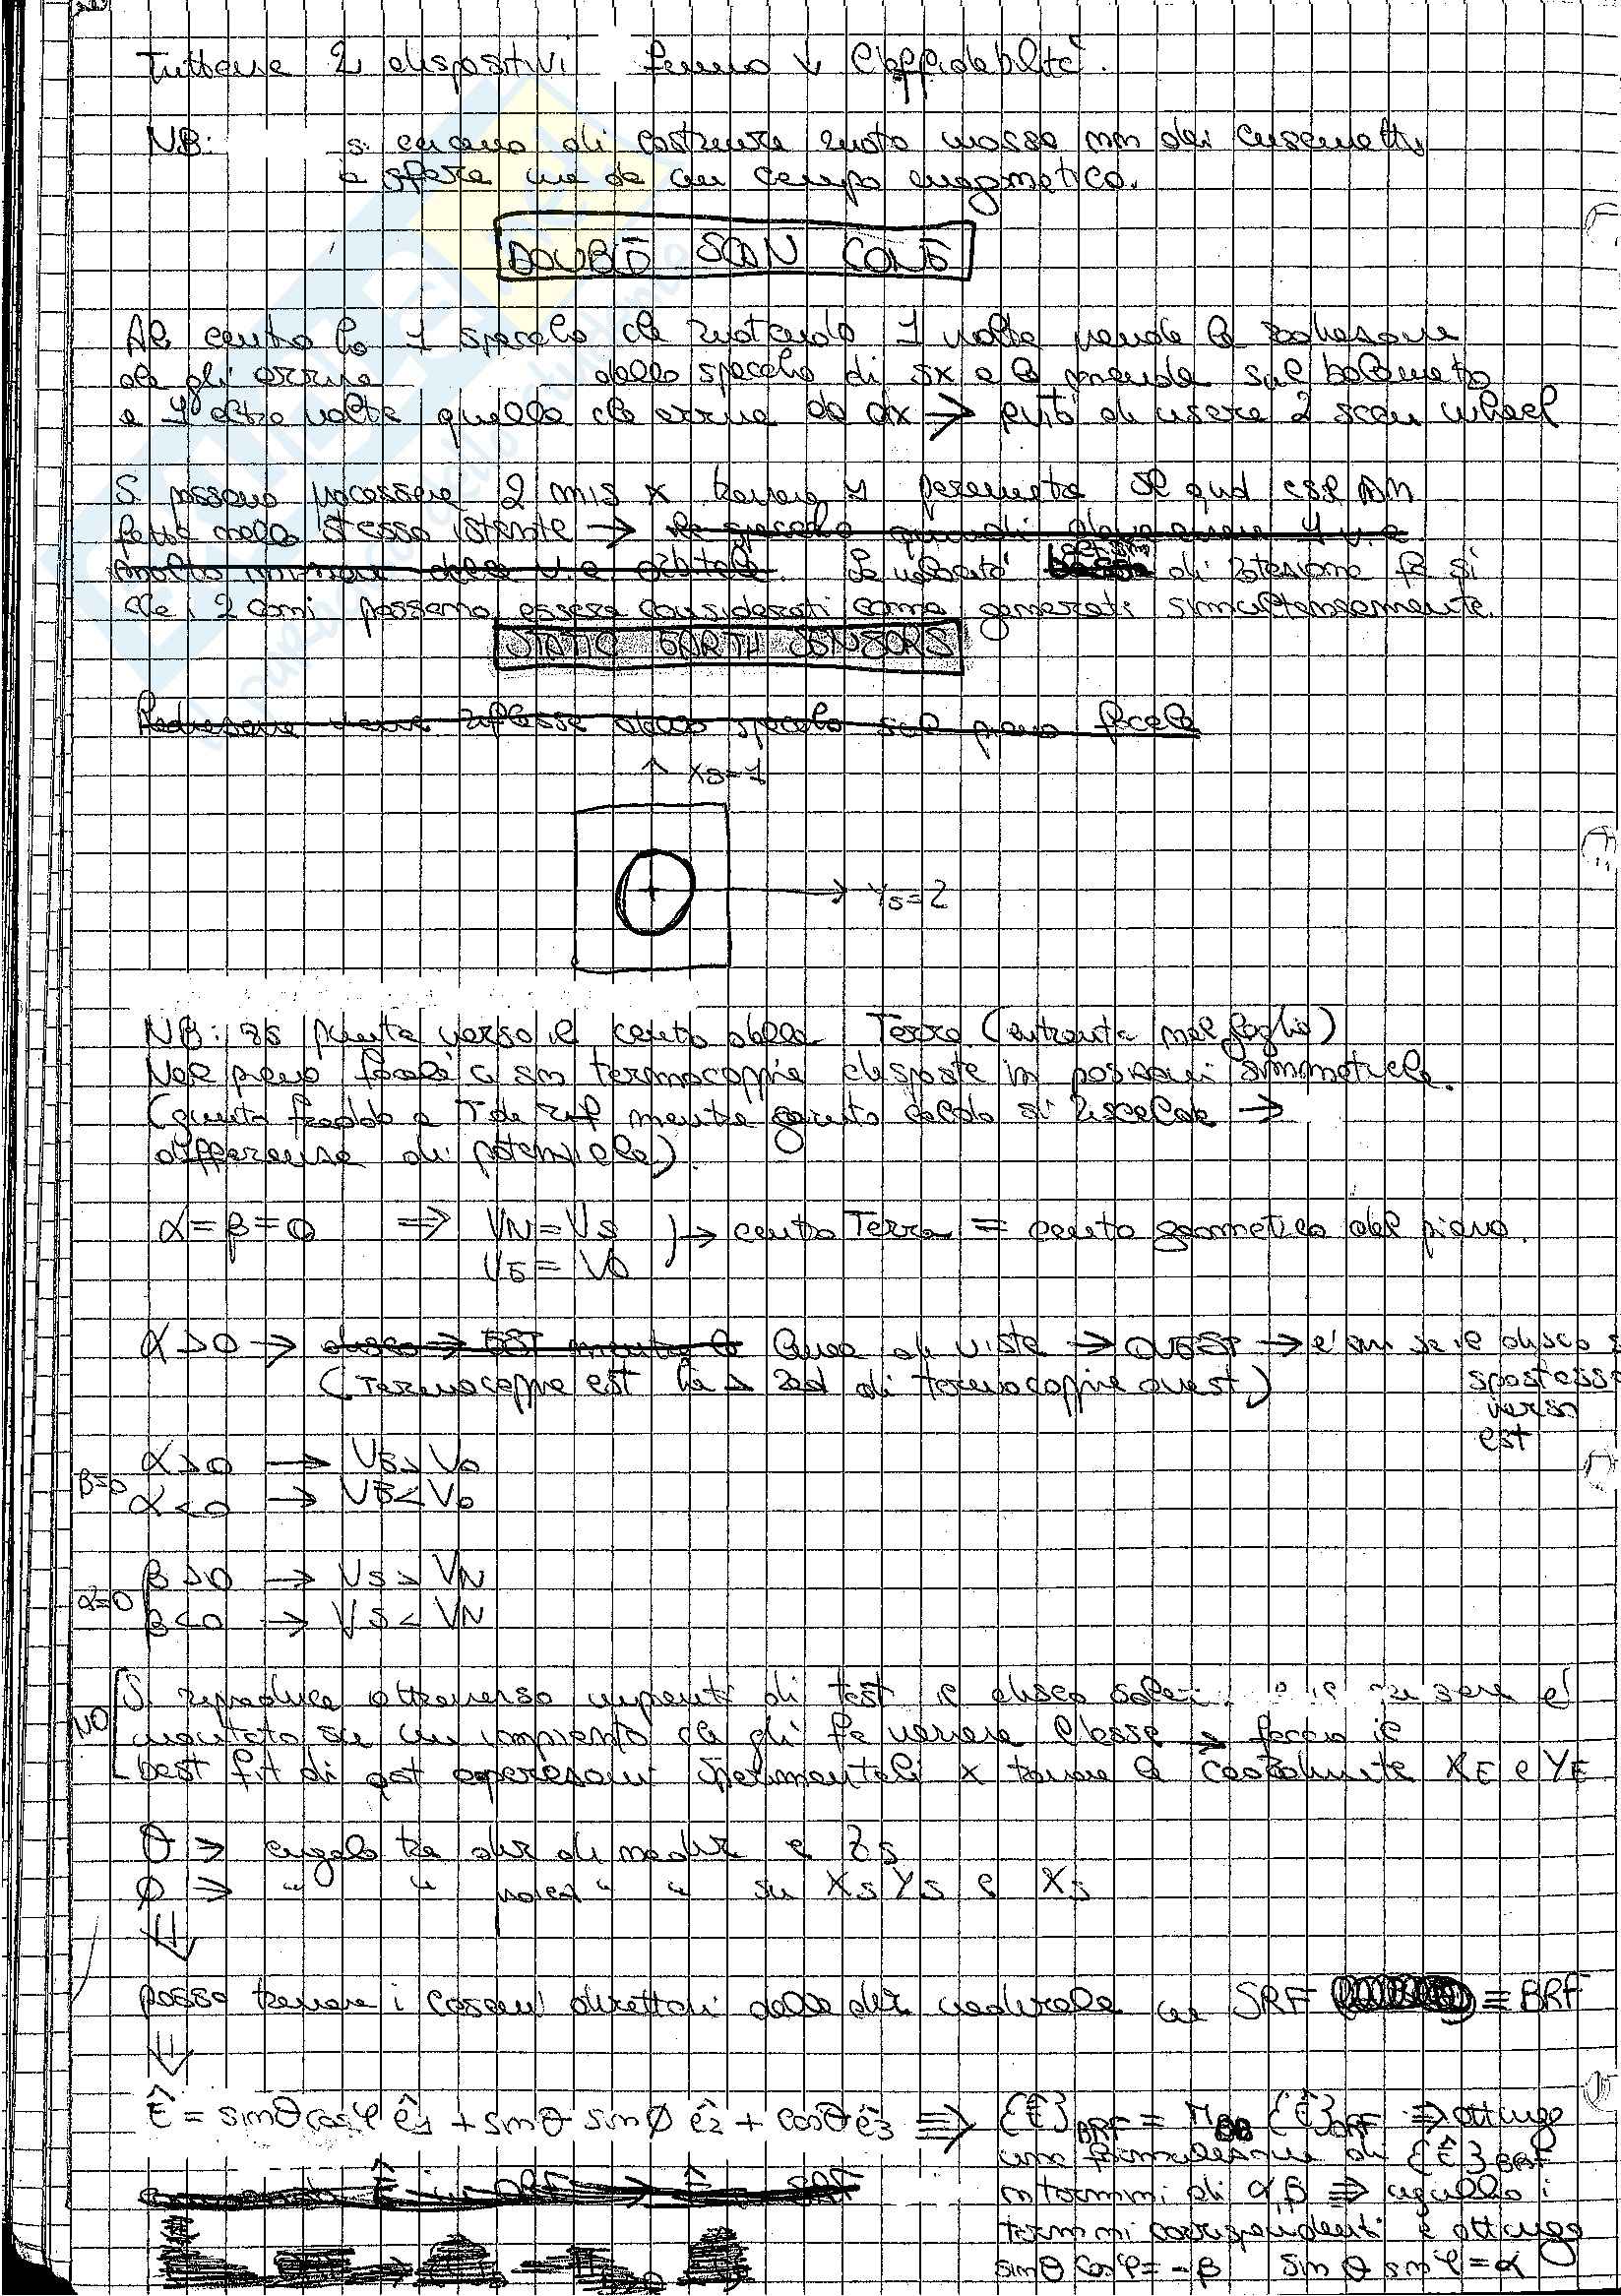 Tuttavia 2 dispositivi fanno ↓ l'affidabilità.
NB: si cercano di costruire ruote mosse nn dai cuscinetti
a sfera ma da un campo magnetico.
DOUBLE SCAN CONE
Al centro ho 1 specchio che ruotando 1 volta prende la radiazione
che gli arriva dallo specchio di sx e la manda sul bolometro
e 1 altra volta quella che arriva da dx → evito di usare 2 scan wheel
Si possono processare 2 mis x trovare 1
fatte nello stesso istante →
La velocità di rotazione fa sì
che i 2 coni possano essere considerati come generati simultaneamente.
STATIC EARTH SENSORS
Radiazione viene riflessa dallo specchio sul piano focale
↑ Xs=1
→ Ys=2
NB: zs punta verso il centro della Terra (entrante nel foglio)
Nel piano focale ci sn termocoppie disposte in posizioni simmetriche.
(giunto freddo a T di rif mentre giunto caldo si riscalda →
differenza di potenziale).
α=β=0 ⇒ VN=VS
VE=VO
→ centro Terra = centro geometrico del piano.
α>0 → linea di vista → OVEST → è cm se il disco si
spostasse
verso
est
(termocoppie est ha > rad di termocoppie ovest)
β=0
α>0 → VE>VO
α<0 → VE<VO
α=0
β>0 → VS>VN
β<0 → VS<VN
NO
Si riproduce attraverso impianti di test il disco e il sensore è
montato su un impianto che gli fa variare l'asse → faccio il
best fit di qst espressioni sperimentali x trovare le coordinate XE e YE
θ ⇒ angolo tra dir di nadir e Zs
φ ⇒ " " proiez " " su Xs Ys e Xs
⇓
posso trovare i coseni direttori della dir nadirale in SRF ≡ BRF
⇓
Ê = sinθ cosφ ê1 + sinθ sinφ ê2 + cosθ ê3 ⇒ {Ê}BRF = MBO {Ê}ORF ⇒ ottengo
una formulazione di {Ê}BRF
in termini di α,β ⇒ uguaglio i
termini corrispondenti e ottengo
sinθ cosφ = -β sinθ sinφ = α